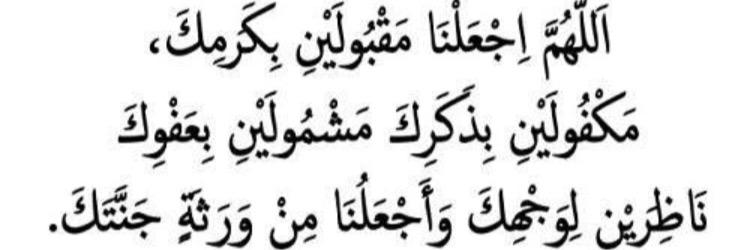 اَللّٰهُمَّ اِجْعَلْنَا مَقْبُولَيْنِ بِكَرَمِكَ،
مَكْفُولَيْنِ بِذَكَرِكَ مَشْمُولَيْنِ بِعَفْوِكَ
نَاظِرَيْنِ لِوَجْهِكَ وَأَجْعَلُنَا مِنْ وَرَثَةٍ جَنَّتَكَ.